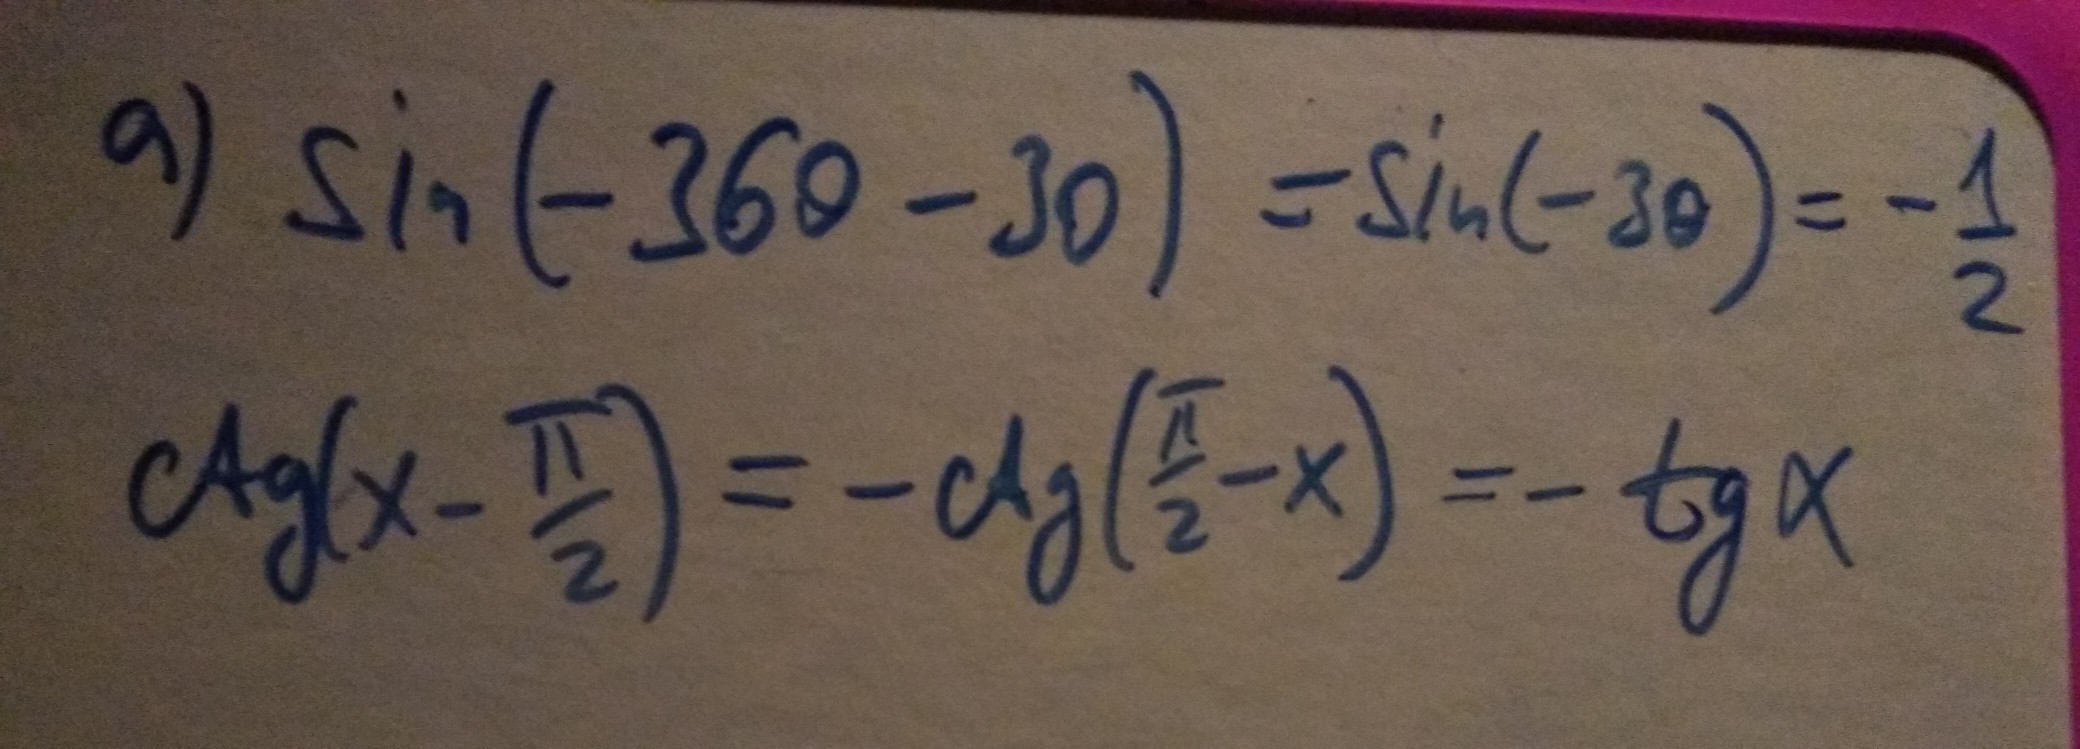 a) sin(-360-30) = sin(-30) = -1/2
ctg(x-π/2) = -ctg(π/2-x) = -tgx